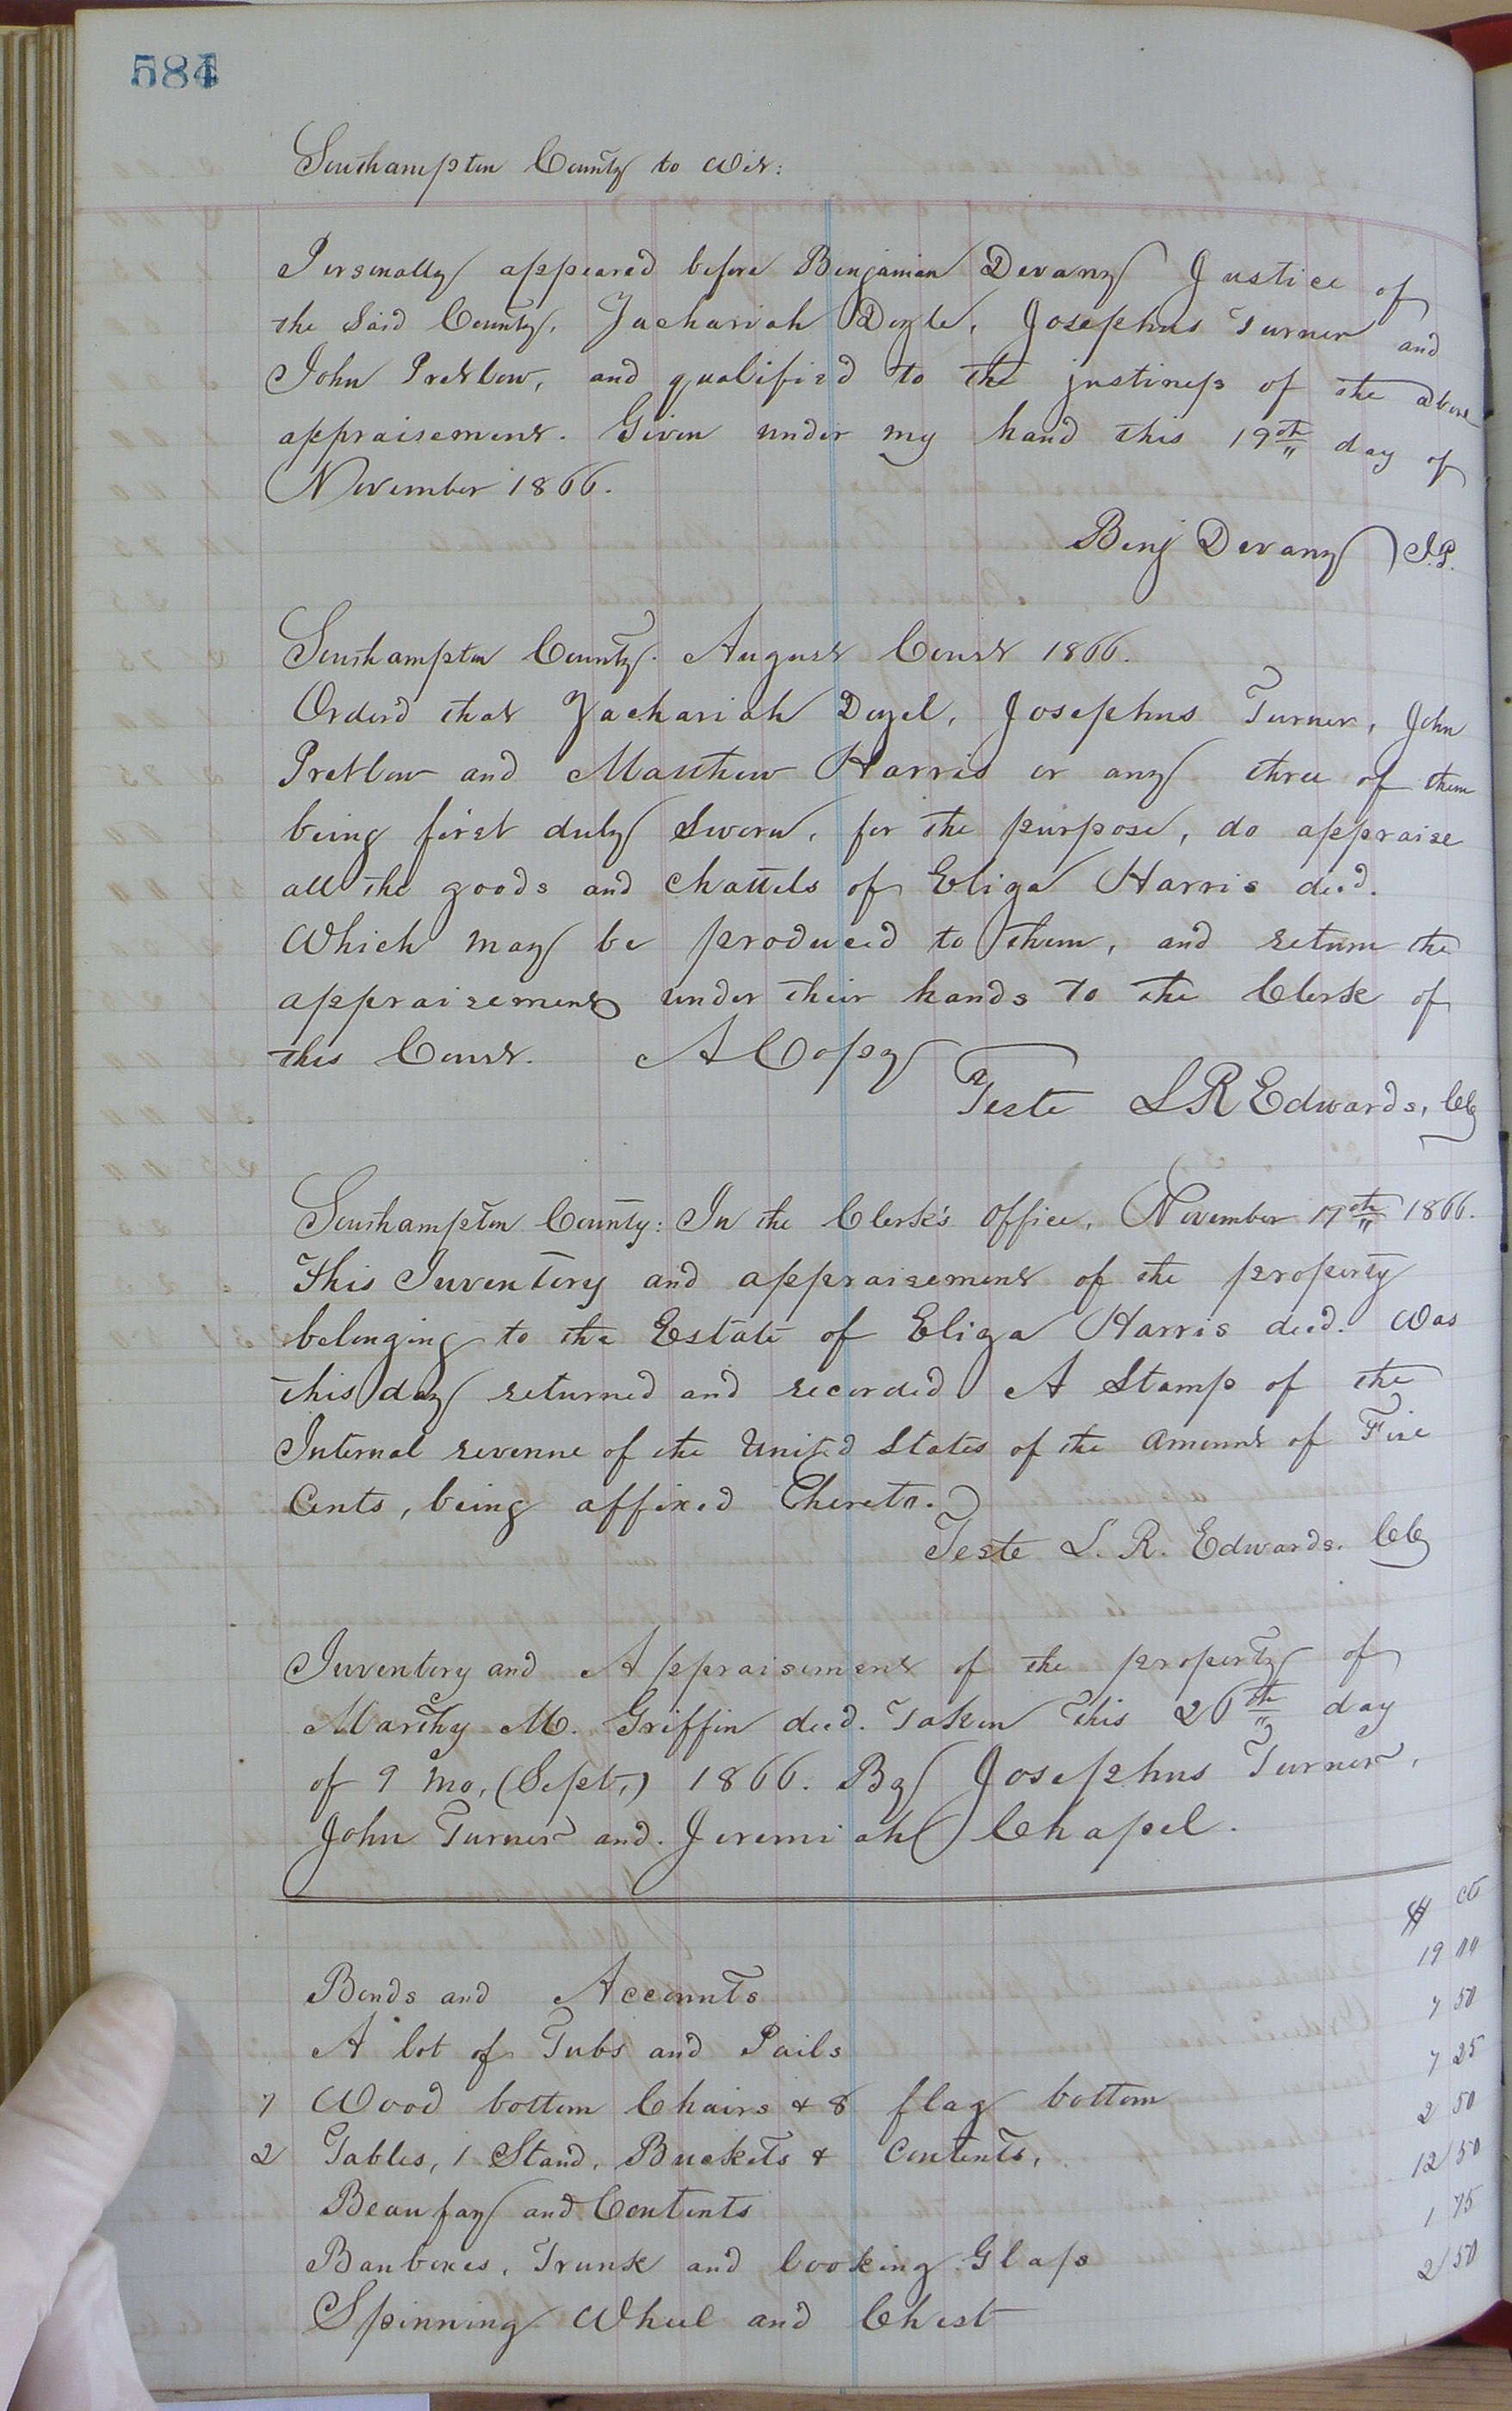 584
Southampton County to wit:
Personally appeared before Benjamin Devany Justice of
the Said County, Zachariah Doyle, Josephus Turner and
John Pretlow, and qualified to the justiness of the above
appraisement. Given under my hand this 19th day of
November 1866.
Benj Devany J.P.
Southampton County. August Court 1866.
Orderd that Zachariah Doyel, Josephus Turner, John
Pretlow and Matthew Harris or any three of them
being first duly Sworn, for the purpose, do appraise
all the goods and chattels of Eliza Harris decd.
Which may be produced to them, and return the
appraisement under their hands to the Clerk of
this Court. A Copy
Teste L R Edwards, Clk
Southampton County: In the Clerk's Office, November 19th 1866.
This Inventory and appraisement of the property
belonging to the Estate of Eliza Harris decd. Was
this day returned and recorded A Stamp of the
Internal revenue of the United States of the amount of Five
Cents, being affixed thereto.
Teste L. R. Edwards. Clk
Inventory and Appraisement of the property of
Marthy M. Griffin decd. Taken this 26th day
of 9 mo, (Sept,) 1866. By Josephus Turner,
John Turner and. Jeremiah Chapel.
$ cts
Bonds and Accounts 19 00
A lot of Tubs and Pails 7 50
7 Wood bottom Chairs & 8 flag bottom 7 25
2 Tables, 1 Stand, Buckets & Contents, 2 50
Beaufay and Contents 12 50
Banboxes, Trunk and looking Glass 1 75
Spinning Wheel and Chest 2 50